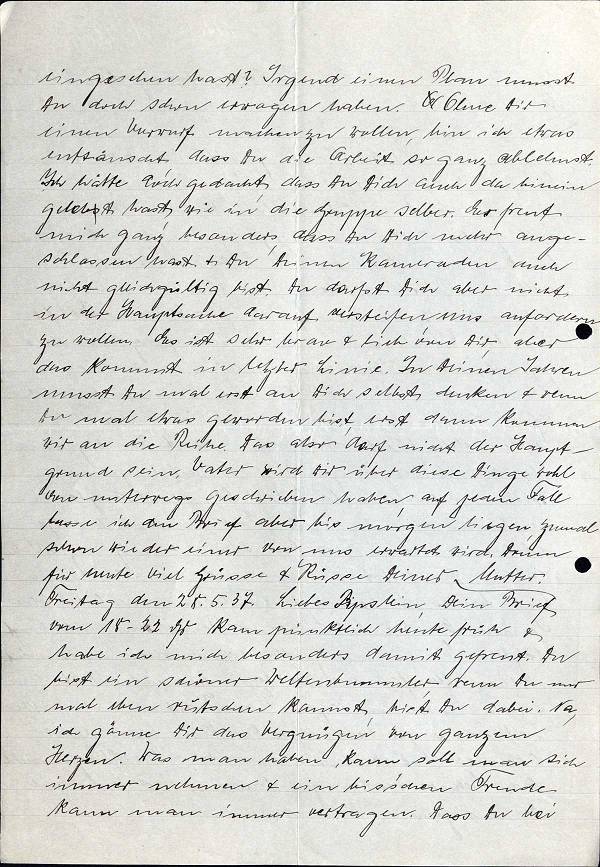 eingesehen hast? Irgend einen Plan musst
Du doch schon erwogen haben. Ohne Dir
einen Vorwurf machen zu wollen, bin ich etwas
enttäuscht dass Du die Arbeit so ganz ablehnst.
Ich hätte doch gedacht, dass Du Dich auch da hinein
gelebt hast, wie in die Gruppe selber. Es freut
mich ganz besonders, dass Du Dich mehr ange-
schlossen hast & Du Deinen Kameraden auch
nicht gleichgültig bist. Du darfst Dich aber nicht
in der Hauptsache darauf versteifen uns anfordern
zu wollen. Es ist sehr brav & lieb von Dir, aber
das kommt in letzter Linie. In Deinen Jahren
musst Du mal erst an Dich selbst denken & wenn
Du mal etwas geworden bist, erst dann kommen
wir an die Reihe. Das also darf nicht der Haupt-
grund sein. Vater wird Dir über diese Dinge wohl
von unterwegs geschrieben haben auf jeden Fall
lasse ich den Brief aber bis morgen liegen, zumal
schon wieder einer von uns erwartet wird. Denn
für heute viel Grüsse & Küsse Deiner Mutter.
Freitag den 28.5.37 Liebes Dein Brief
vom 18-22 ds kam pünktlich heute früh &
habe ich mich besonders damit gefreut. Du
bist ein schöner Weltenbummler, wenn Du nur
mal eben rutschen kannst, bist Du dabei. Na,
ich gönne Dir das Vergnügen von ganzem
Herzen. Was man haben kann soll man sich
immer nehmen & ein bisschen Freude
kann man immer vertragen. Dass Du bei